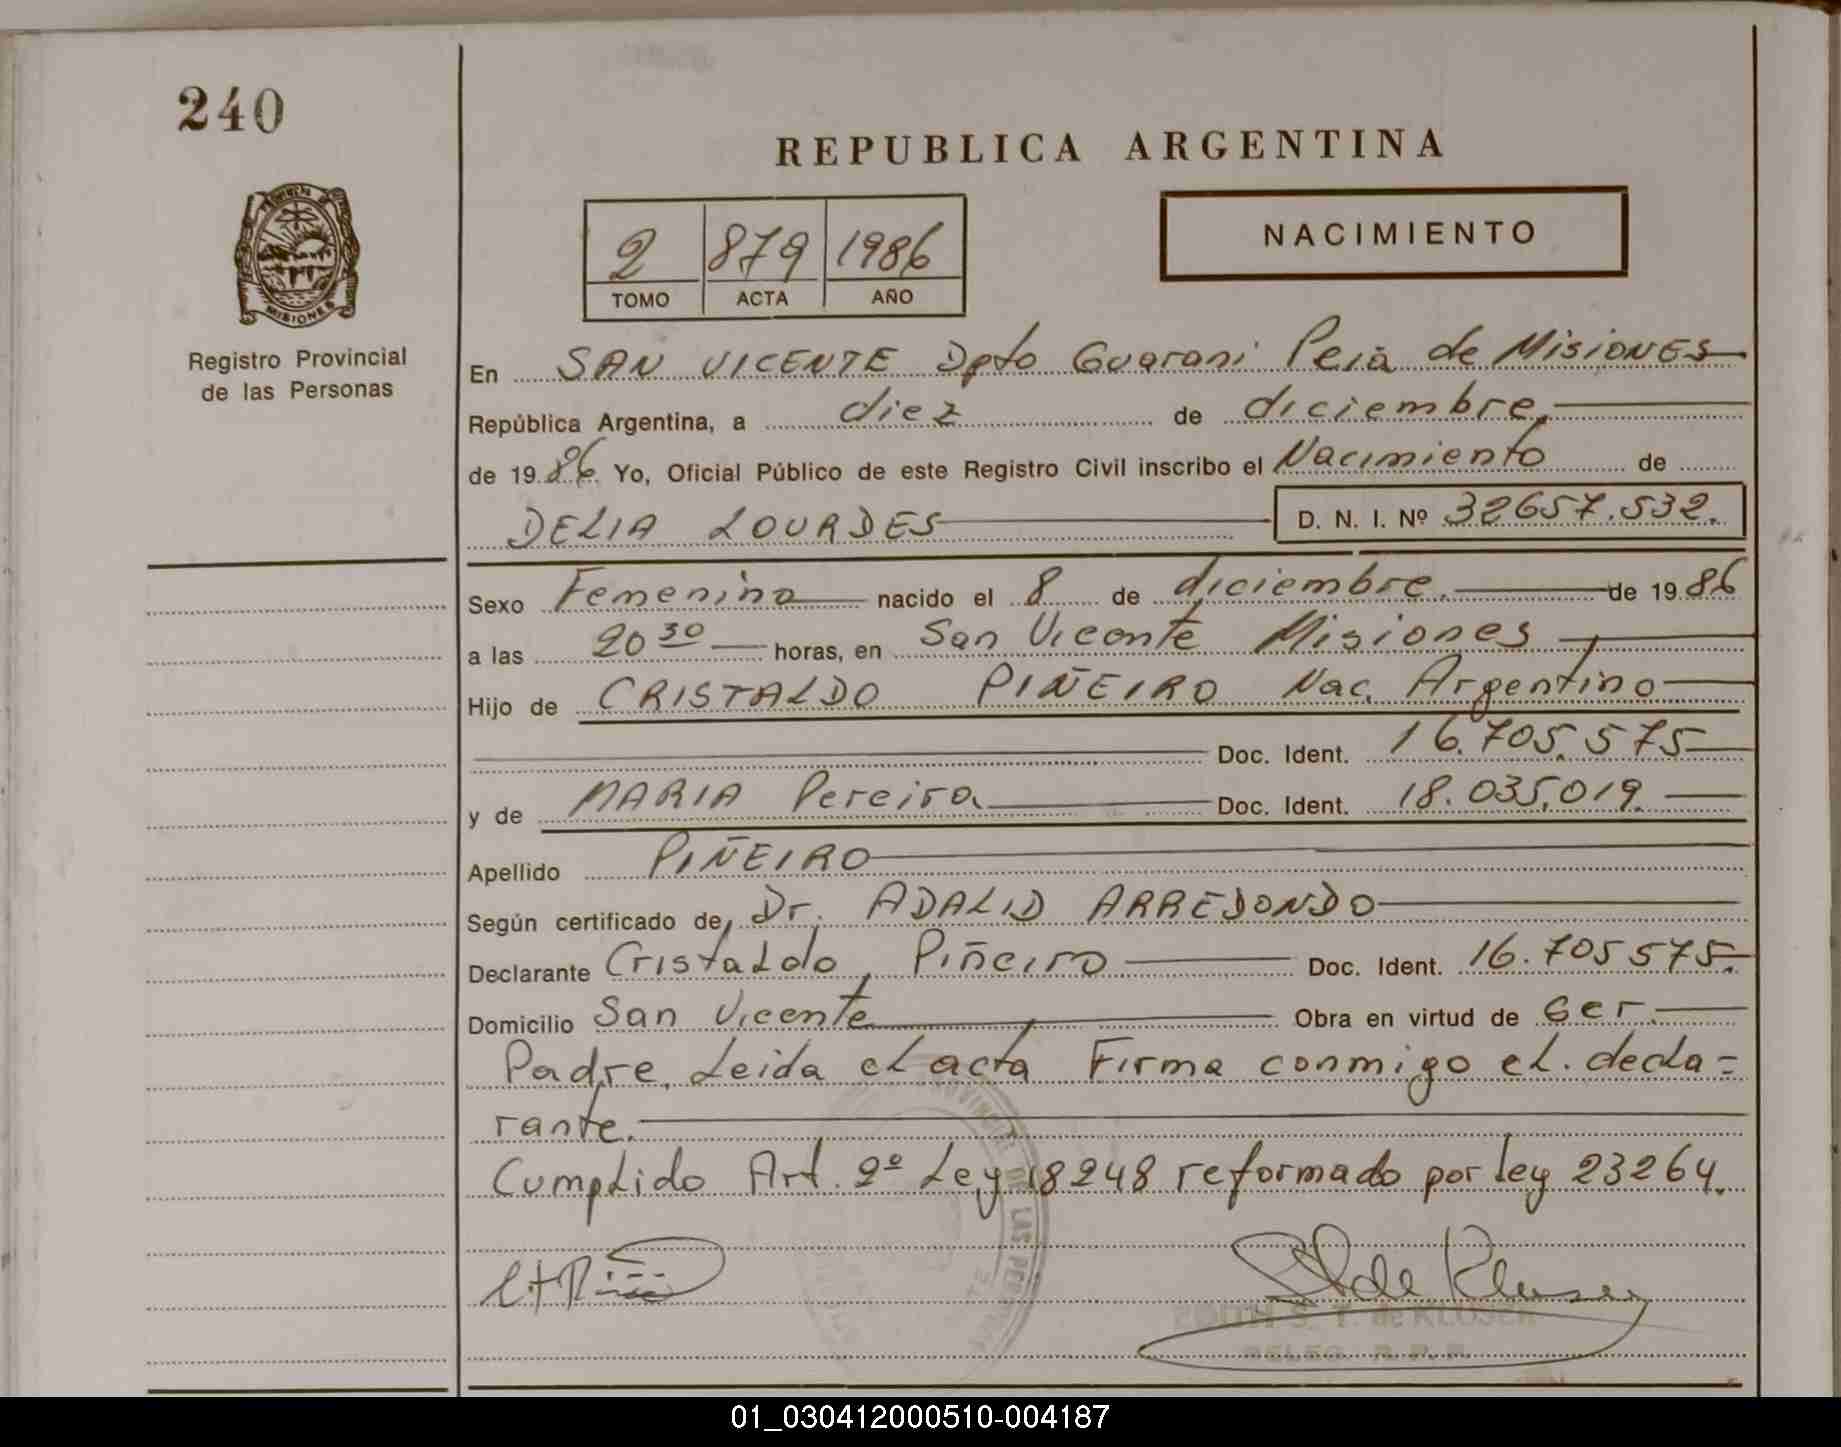 240
REPUBLICA ARGENTINA
MISIONES
Registro Provincial
de las Personas
2 879 1986
TOMO ACTA AÑO
NACIMIENTO
En SAN VICENTE Dpto Guarani Pcia de MISIONES
República Argentina, a diez de diciembre.
de 1986 Yo, Oficial Público de este Registro Civil inscribo el Nacimiento de
DELIA LOURDES D. N. I. Nº 32657.532.
Sexo Femenino nacido el 8 de diciembre. de 1986
a las 20 30 horas, en San Vicente Misiones
Hijo de CRISTALDO PIÑEIRO Nac. Argentino
Doc. Ident. 16.705.575
y de MARIA Pereira Doc. Ident. 18.035.019.
Apellido PIÑEIRO
Según certificado de, Dr. ADALID ARREDONDO
Declarante Cristaldo, Piñeiro Doc. Ident. 16.705575.
Domicilio San Vicente Obra en virtud de ser.
Padre, Leida el acta Firma conmigo el. decla=
rante.
Cumplido Art. 2º Ley 18248 reformado por ley 23264.
DE LAS PERSONAS
EDITH S. T. de KLUSER
DELEG. R. P. P.
01_030412000510-004187